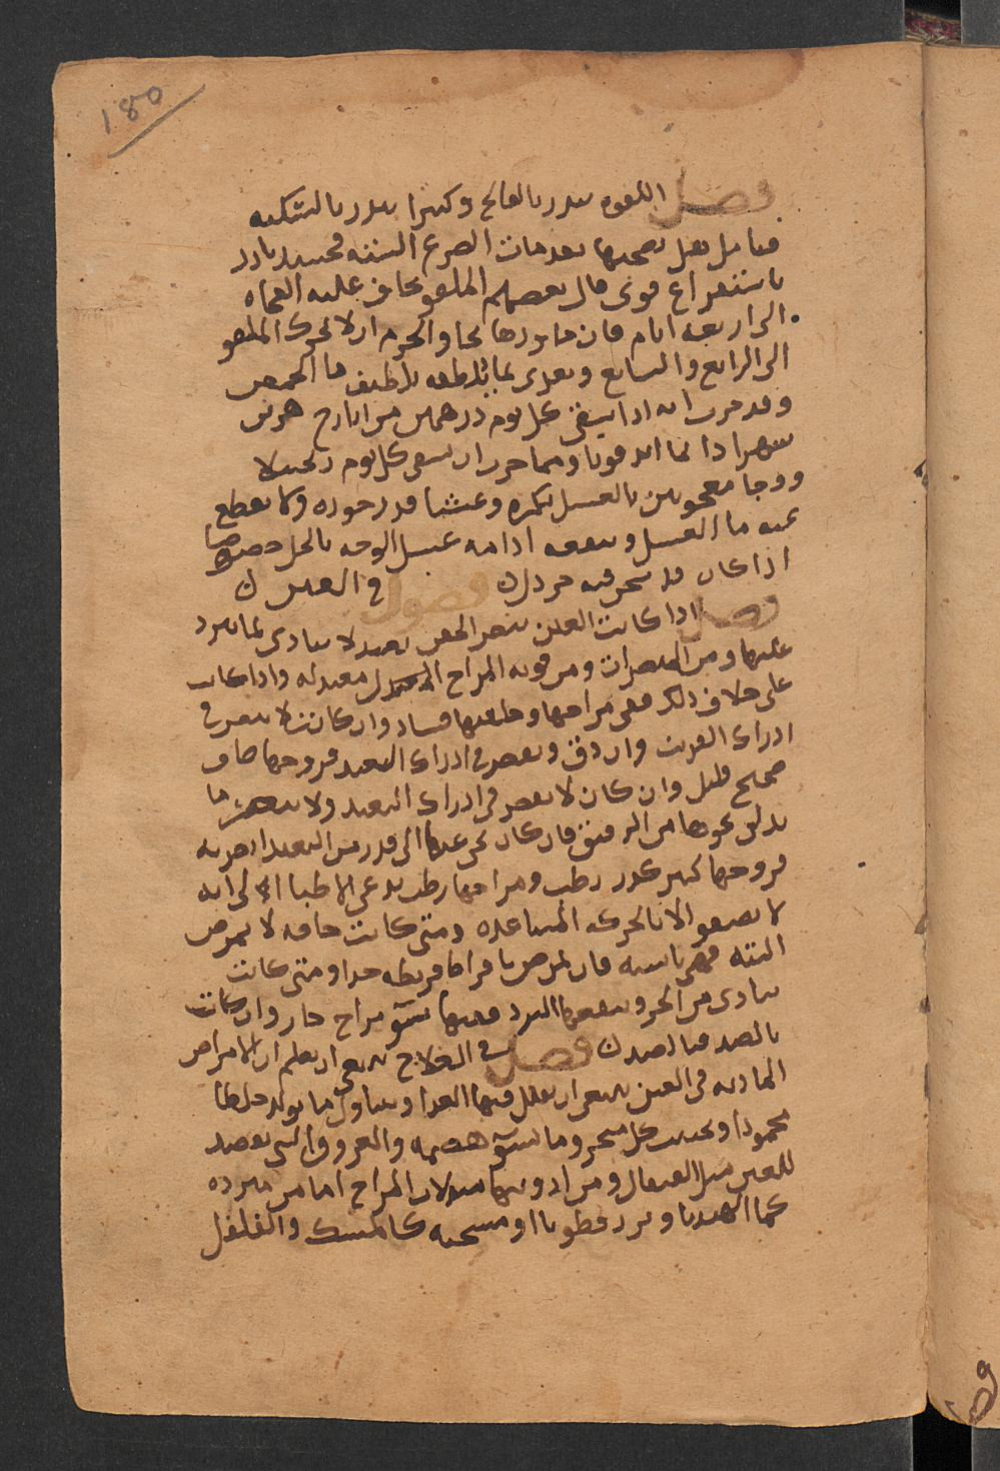 ١٨٥
فصل اللقوه تنذر بالفالج وكثيرا تنذر بالسكته
فتامل هل تصحبها مقدمات الصرع السكته فحينئذ بادر
باستفراغ قوى قال بعضهم الملقو يخاف عليه الفجاه
الى اربعه ايام فان جاوزها نجا والحزم ان لا يحرك الملقو
الى الرابع والسابع ويغذى بما يلطفه تلطيف ما الحمص
وقد جرب انه اذا يسقى كل يوم درهمين من ايارج هرمس
شهرا دايما ابرا قويا ومما جرب ان يسقى كل يوم زنجبيلا
ووجا معجونين بالعسل بكره وعشيا قدر جوزه ولا يقطع
عنه ما العسل وينفعه ادامه غسل الوجه بالخل خصوصا
اذا كان قد سحق فيه خردل فصول في العين
فصل اذا كانت العين تبصر الخفى البعيد لا تتاذى بما يرد
عليها من المبصرات ومن قويه المزاج معتدله واذا كانت
على خلاف ذلك ففى مزاجها وخلقتها فساد وان كانت لا تقصر في
ادراك القريب وان دق وتقصر في ادراك البعيد فروحها صاف
صحيح قليل وان كان لا تقصر في ادراك البعيد ولا تبصر ما
يدنى نحوها من الرقيق فان كان نحى عنها الى قدر من البعد ابصرته
فروحها كثير كدر رطب ومزاجها رطب يدعى الاطبا انه
لا يصفو الا بالحركه المتباعده ومتى كانت جافه لا ترمص
البته فهي يابسه فان رمصت بافراط فرطبه جدا ومتى كانت
تتاذى من الحر وينفعها البرد ففيها سو مزاج حار وان كانت
بالضد فبالضد فصل في العلاج ينبغى ان يعلم ان الامراض
الماديه في العين ينبغى ان يقلل فيها الغذا ويتناول ما يولد خلطا
محمودا ويجتنب كل مبخر وما يسو هضمه والعروق التى تفصد
للعين مثل القيفال ومن ادويتها مبدلات المزاج اما من مبرده
كما الهندبا وبزر قطونا او مسخنه كالمسك والفلفل